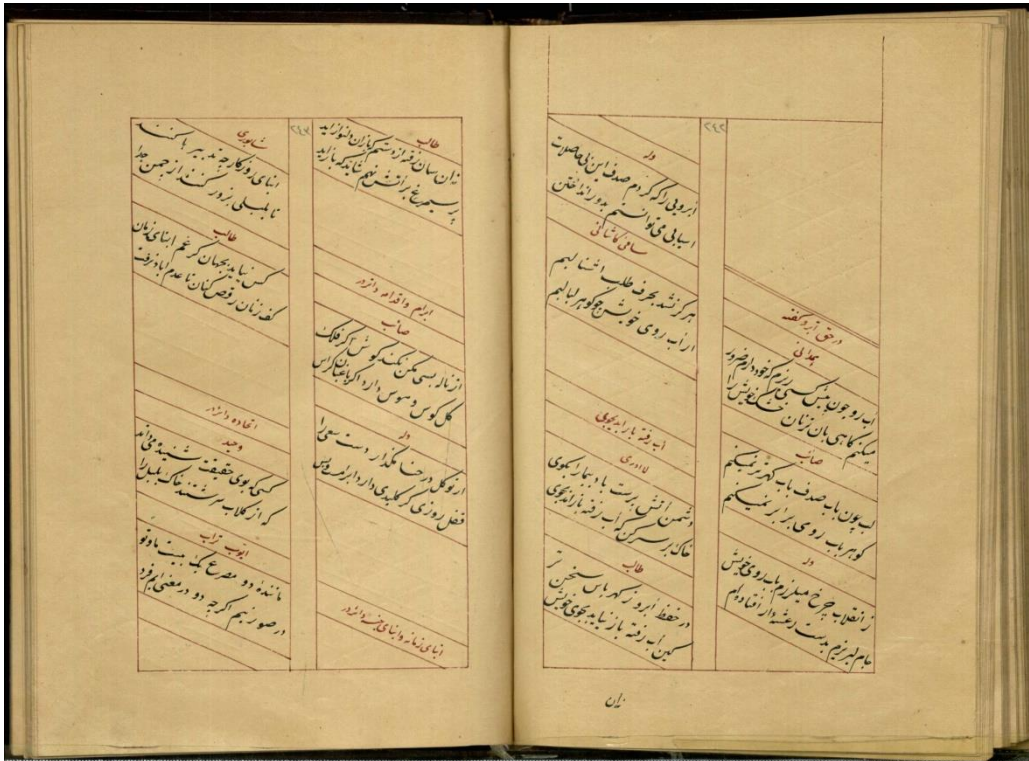 ۲۴۲
در حق ابرو گفته
همدانی
آب رو چون پیش کسی ریزم که خود دارم ضرور
میکنم کاهی بآن تر نان خشک خویش را
صائب
لب چون باب صدف باب گهر تر نمیکنم
گوهر بآب روی برابر نمیکنم
وله
ز انقلاب چرخ میلرزم بآب روی خویش
جام لبریزم بدست رعشه‌دار افتاده‌ام
وله
ابرویی را که کردم صدف این بی حاصلات
آسیابی می توانستم بدور انداختن
ساقی کاشانی
هرگز نشد بحرف طلب آشنا لبم
از آب روی خویش چو گوهر لبالبم
آب رفته باز آید بجوی
لا ادری
دشمن آتش پرست باد پیما را بگوی
خاک بر سر کن که آب رفته باز آید بجوی
طالب
در حفظ آبرو ز گهر باش سخت تر
کین آب رفته باز نیاید بجوی خویش
زان
۲۴۳
طالب
زان سان رفته از دستم که یاران دلنواز آید
پر سیمرغ بر آتش نهم شاید که باز آید
ابرام و اقدام دانزدر
صائب
از ناله بسی نکند گوش اگر فلک
گل گوش و هوش دارد اگر باغبان کر است
وله
از توکل در حسا مگذار دست سعی را
قفل روزی گر کلیدی دارد ابرامست و بس
ابنای زمانه و ابنای جنس دانزدر
شاپوری
ابنای روزگار چه تدبیر ها کنند
تا بلبلی بزور کنند از چمن جدا
طالب
کس نیاید بجهان کز غم ابنای زمان
کف زنان رقص کنان تا عدم آباد نرفت
افتاده دانزدر
وحید
کسی که بوی حقیقت شنیده میداند
که از گلاب سرشتند خاک بلبل را
ایوب تراب
ماننده دو مصرع یک بیت ما و تو
در صورتیم اگر چه دو در معنی ایم فرد